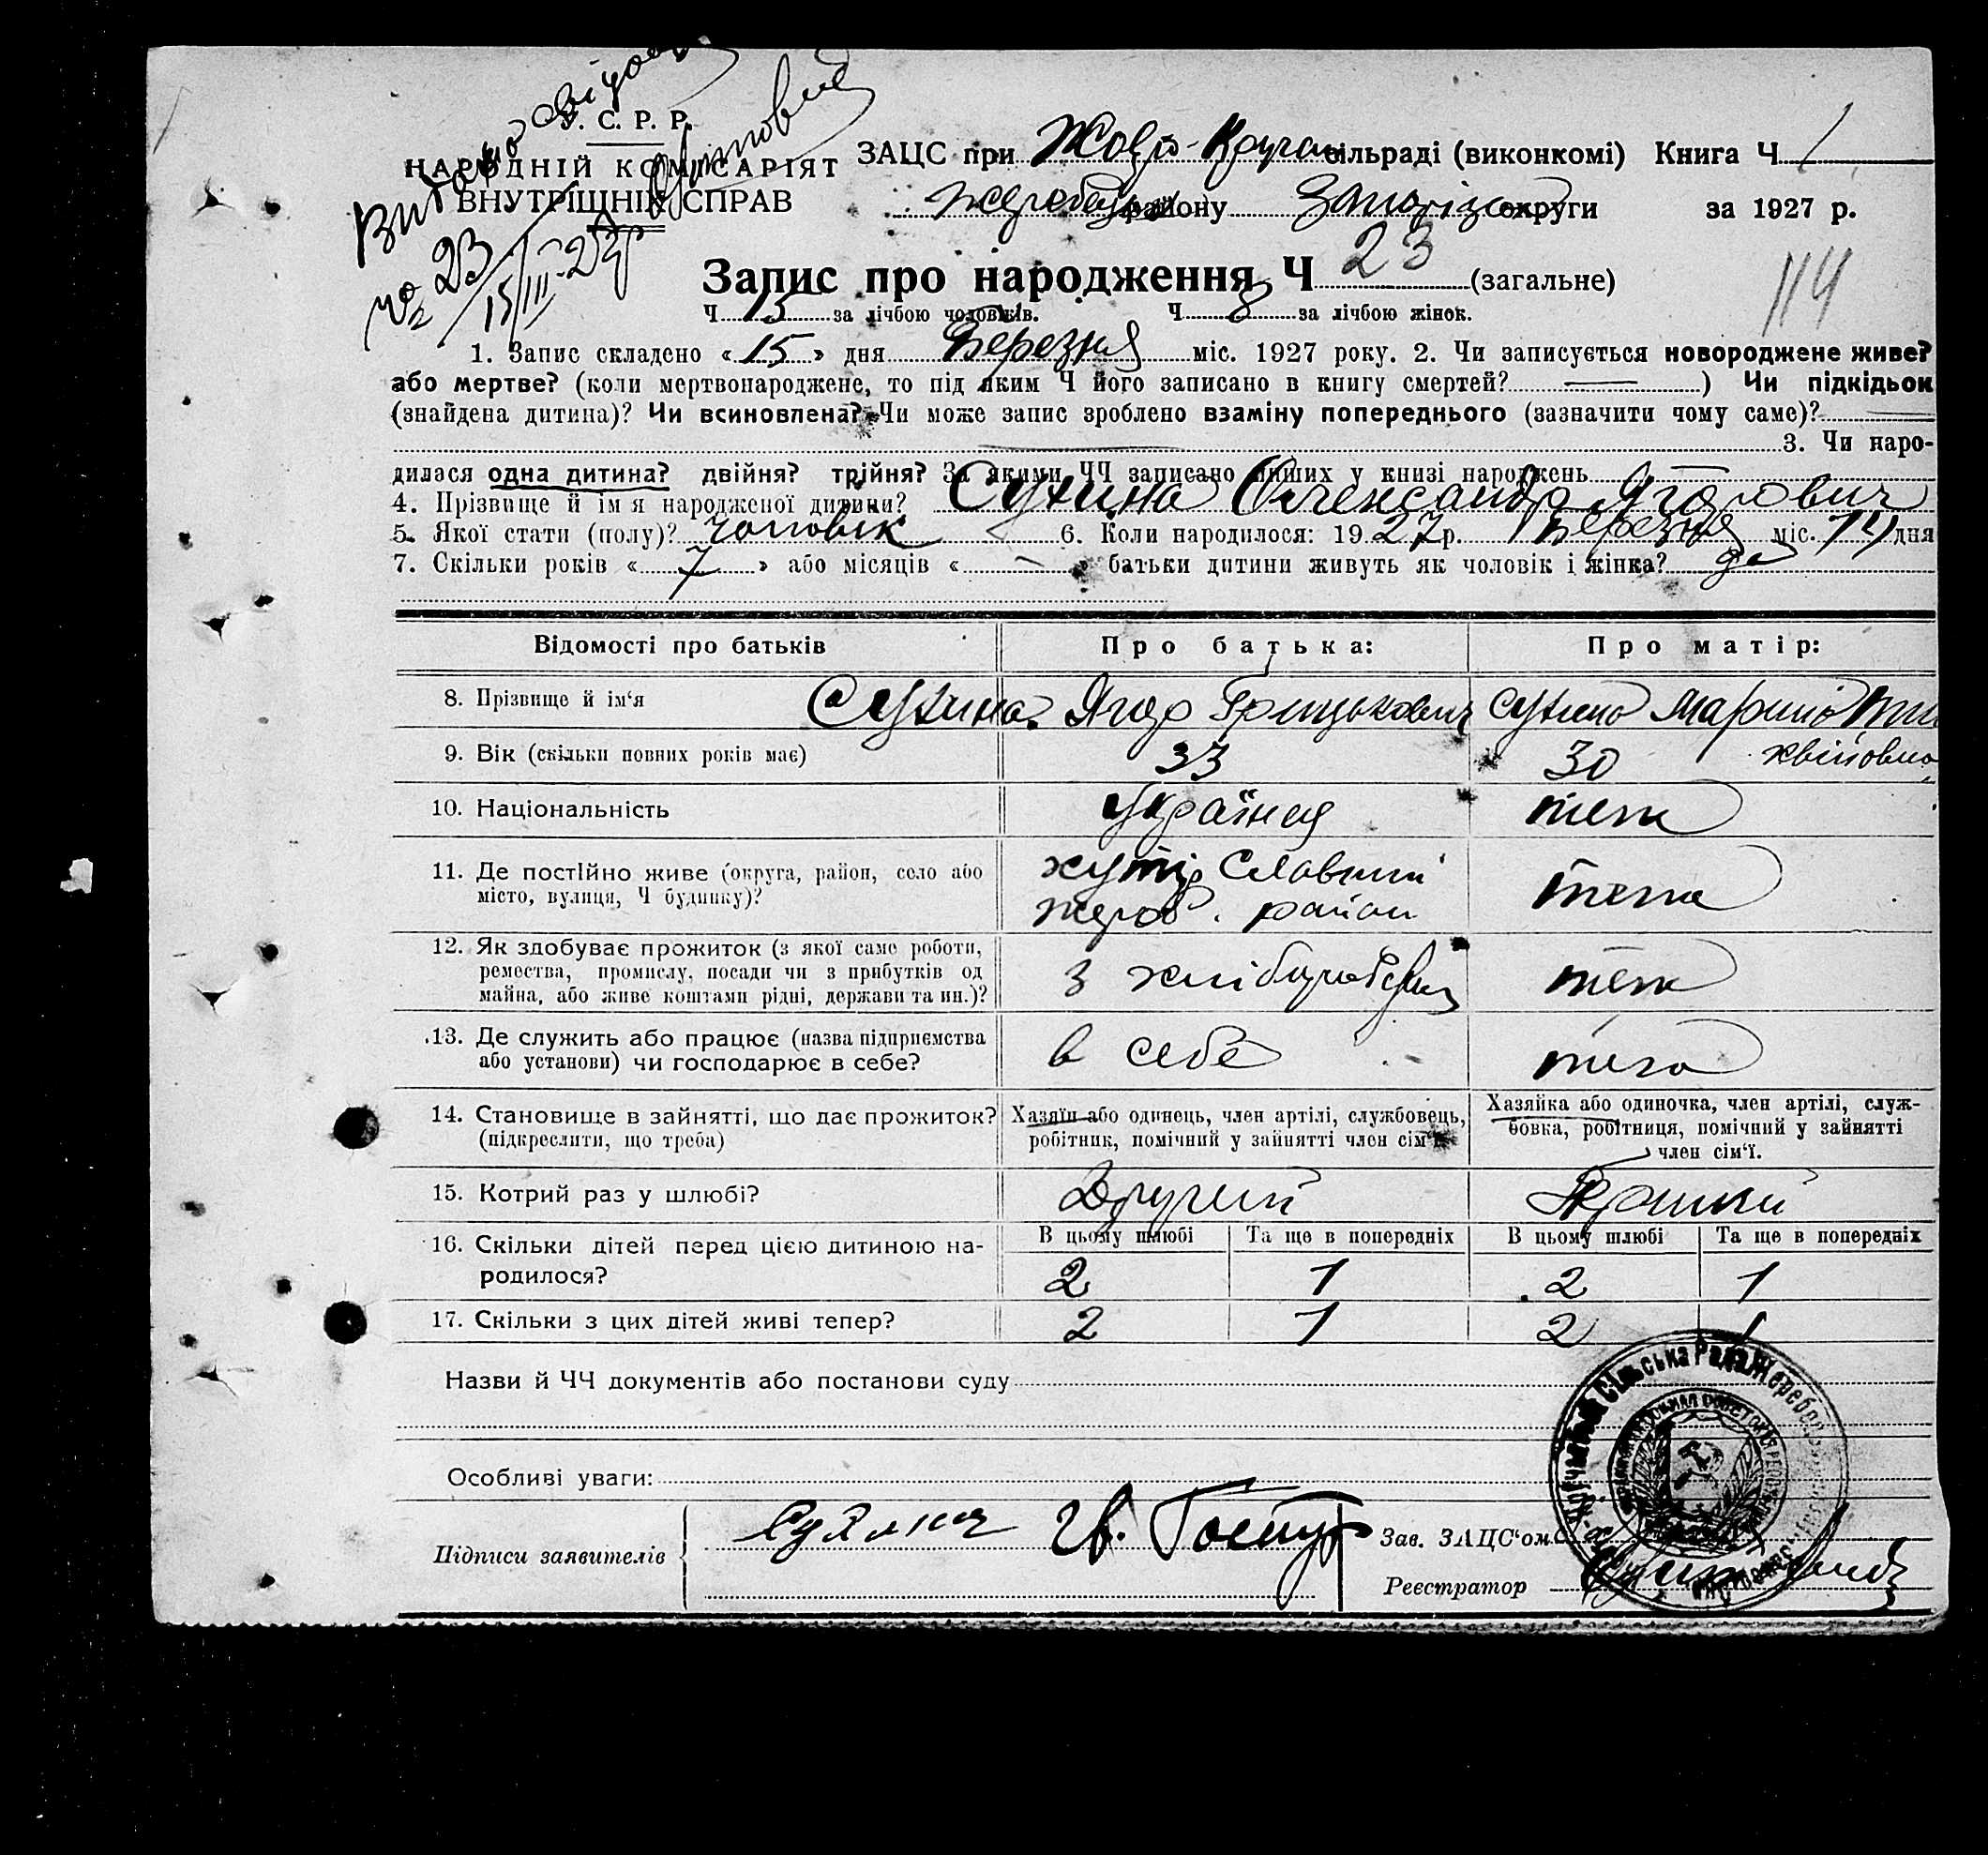 У. С. Р. Р.
НАРОДНІЙ КОМІСАРІЯТ
ВНУТРІШНІХ СПРАВ
Видано
№ 23
15/III-27р
ЗАЦС при Жовто-Круча сільраді (виконкомі) Книга Ч 1
Жеребец району Запоріз округи за 1927 р.
Запис про народження Ч 23 (загальне)
114
Ч 15 за лічбою чоловіків. Ч 8 за лічбою жінок.
1. Запис складено « 15 » дня Березня міс. 1927 року. 2. Чи записується новороджене живе?
або мертве? (коли мертвонароджене, то під яким Ч його записано в книгу смертей? — ) Чи підкідьок
(знайдена дитина)? Чи всиновлена? Чи може запис зроблено взаміну попереднього (зазначити чому саме)?
3. Чи наро-
дилася одна дитина? двійня? трійня? За якими ЧЧ записано инших у книзі народжень
4. Прізвище й ім'я народженої дитини? Сухина Олександр Ягорович
5. Якої стати (полу)? чоловік 6. Коли народилося: 1927 р. Березня міс. 14 дня
7. Скільки років « 7 » або місяців « — » батьки дитини живуть як чоловік і жінка? да
Відомості про батьків Про батька: Про матір:
8. Прізвище й ім'я Сухина Ягор Грицькович Сухина Марина
9. Вік (скільки повних років має) 33 30 хвійовна
10. Національність Українця теж
11. Де постійно живе (округа, район, село або хутір Славний теж
місто, вулиця, Ч будинку)? жереб. район
12. Як здобуває прожиток (з якої саме роботи, з хліборобства теж
ремества, промислу, посади чи з прибутків од
майна, або живе коштами рідні, держави та ин.)?
13. Де служить або працює (назва підприємства в себе
або установи) чи господарює в себе?
14. Становище в зайнятті, що дає прожиток? Хазяїн або одинець, член артілі, службовець, Хазяйка або одиночка, член артілі, служ-
(підкреслити, що треба) робітник, помічний у зайнятті член сім'ї. бовка, робітниця, помічний у зайнятті
член сім'ї.
15. Котрий раз у шлюбі? Другий
16. Скільки дітей перед цією дитиною на- В цьому шлюбі Та ще в попередніх В цьому шлюбі Та ще в попередніх
родилося? 2 1 2 1
17. Скільки з цих дітей живі тепер? 2 1 2 1
Назви й ЧЧ документів або постанови суду
Особливі уваги:
Підписи заявителів Сухина
Зав. ЗАЦС'ом
Реєстратор
Сільська Рада Жереб